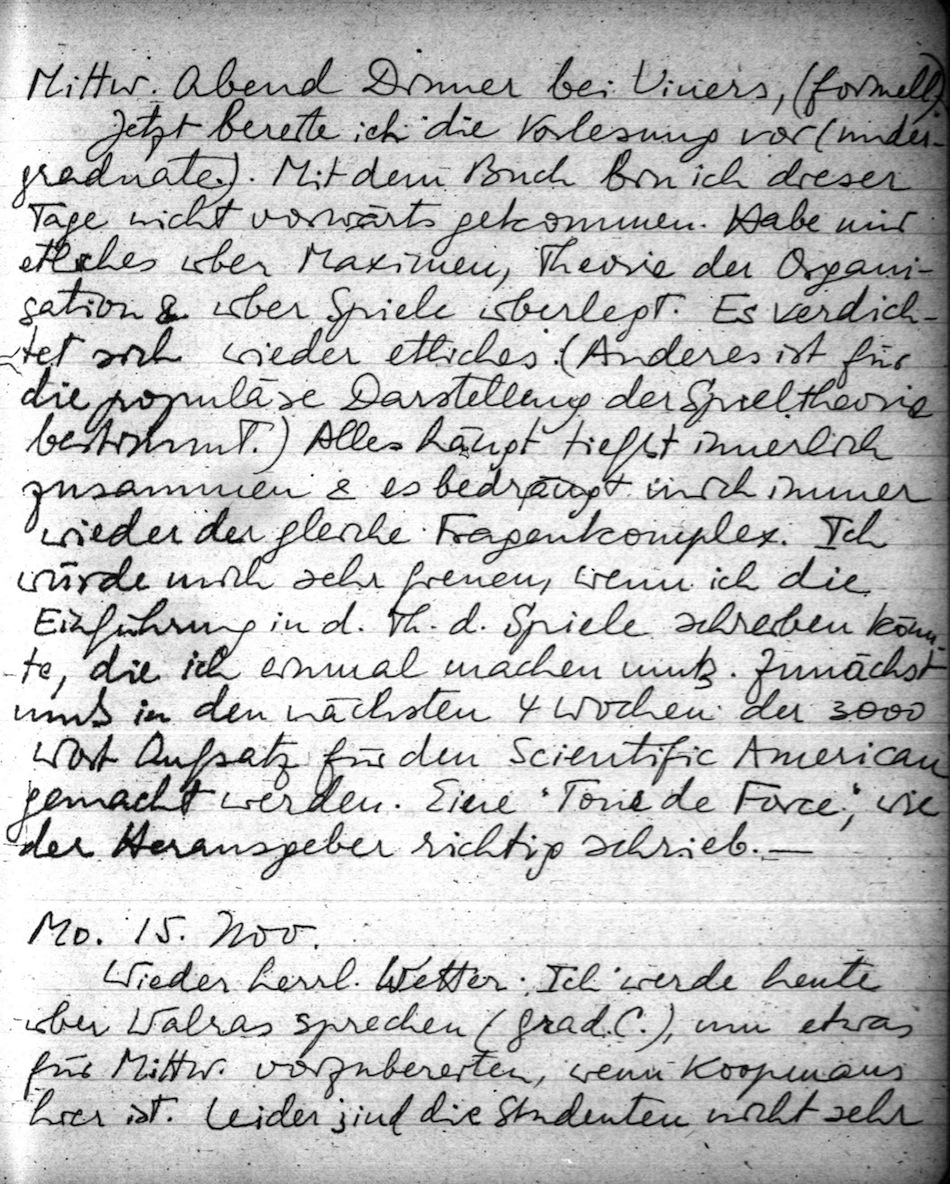 Mittw. Abend Dinner bei Viners, (formell)
Jetzt bereite ich die Vorlesung vor (under-
graduate). Mit dem Buch bin ich dieser
Tage nicht vorwärts gekommen. Habe mir
etliches über Maximen, Theorie der Organi-
sation & über Spiele überlegt. Es verdich-
tet sich wieder etliches. (Anderes ist für
die populäre Darstellung der Spieltheorie
bestimmt.) Alles hängt tiefst innerlich
zusammen & es bedrängt mich immer
wieder der gleiche Fragenkomplex. Ich
würde mich sehr freuen, wenn ich die
Einführung in d. Th. d. Spiele schreiben könn-
te, die ich einmal machen muß. Zunächst
muß in den nächsten 4 Wochen der 3000
Wort Aufsatz für den Scientific American
gemacht werden. Eine "Tour de Force", wie
der Herausgeber richtig schrieb. —
Mo. 15. Nov.
Wieder herrl. Wetter. Ich werde heute
über Walras sprechen (grad. C.), um etwas
für Mittw. vorzubereiten, wenn Koopmans
hier ist. Leider sind die Studenten nicht sehr